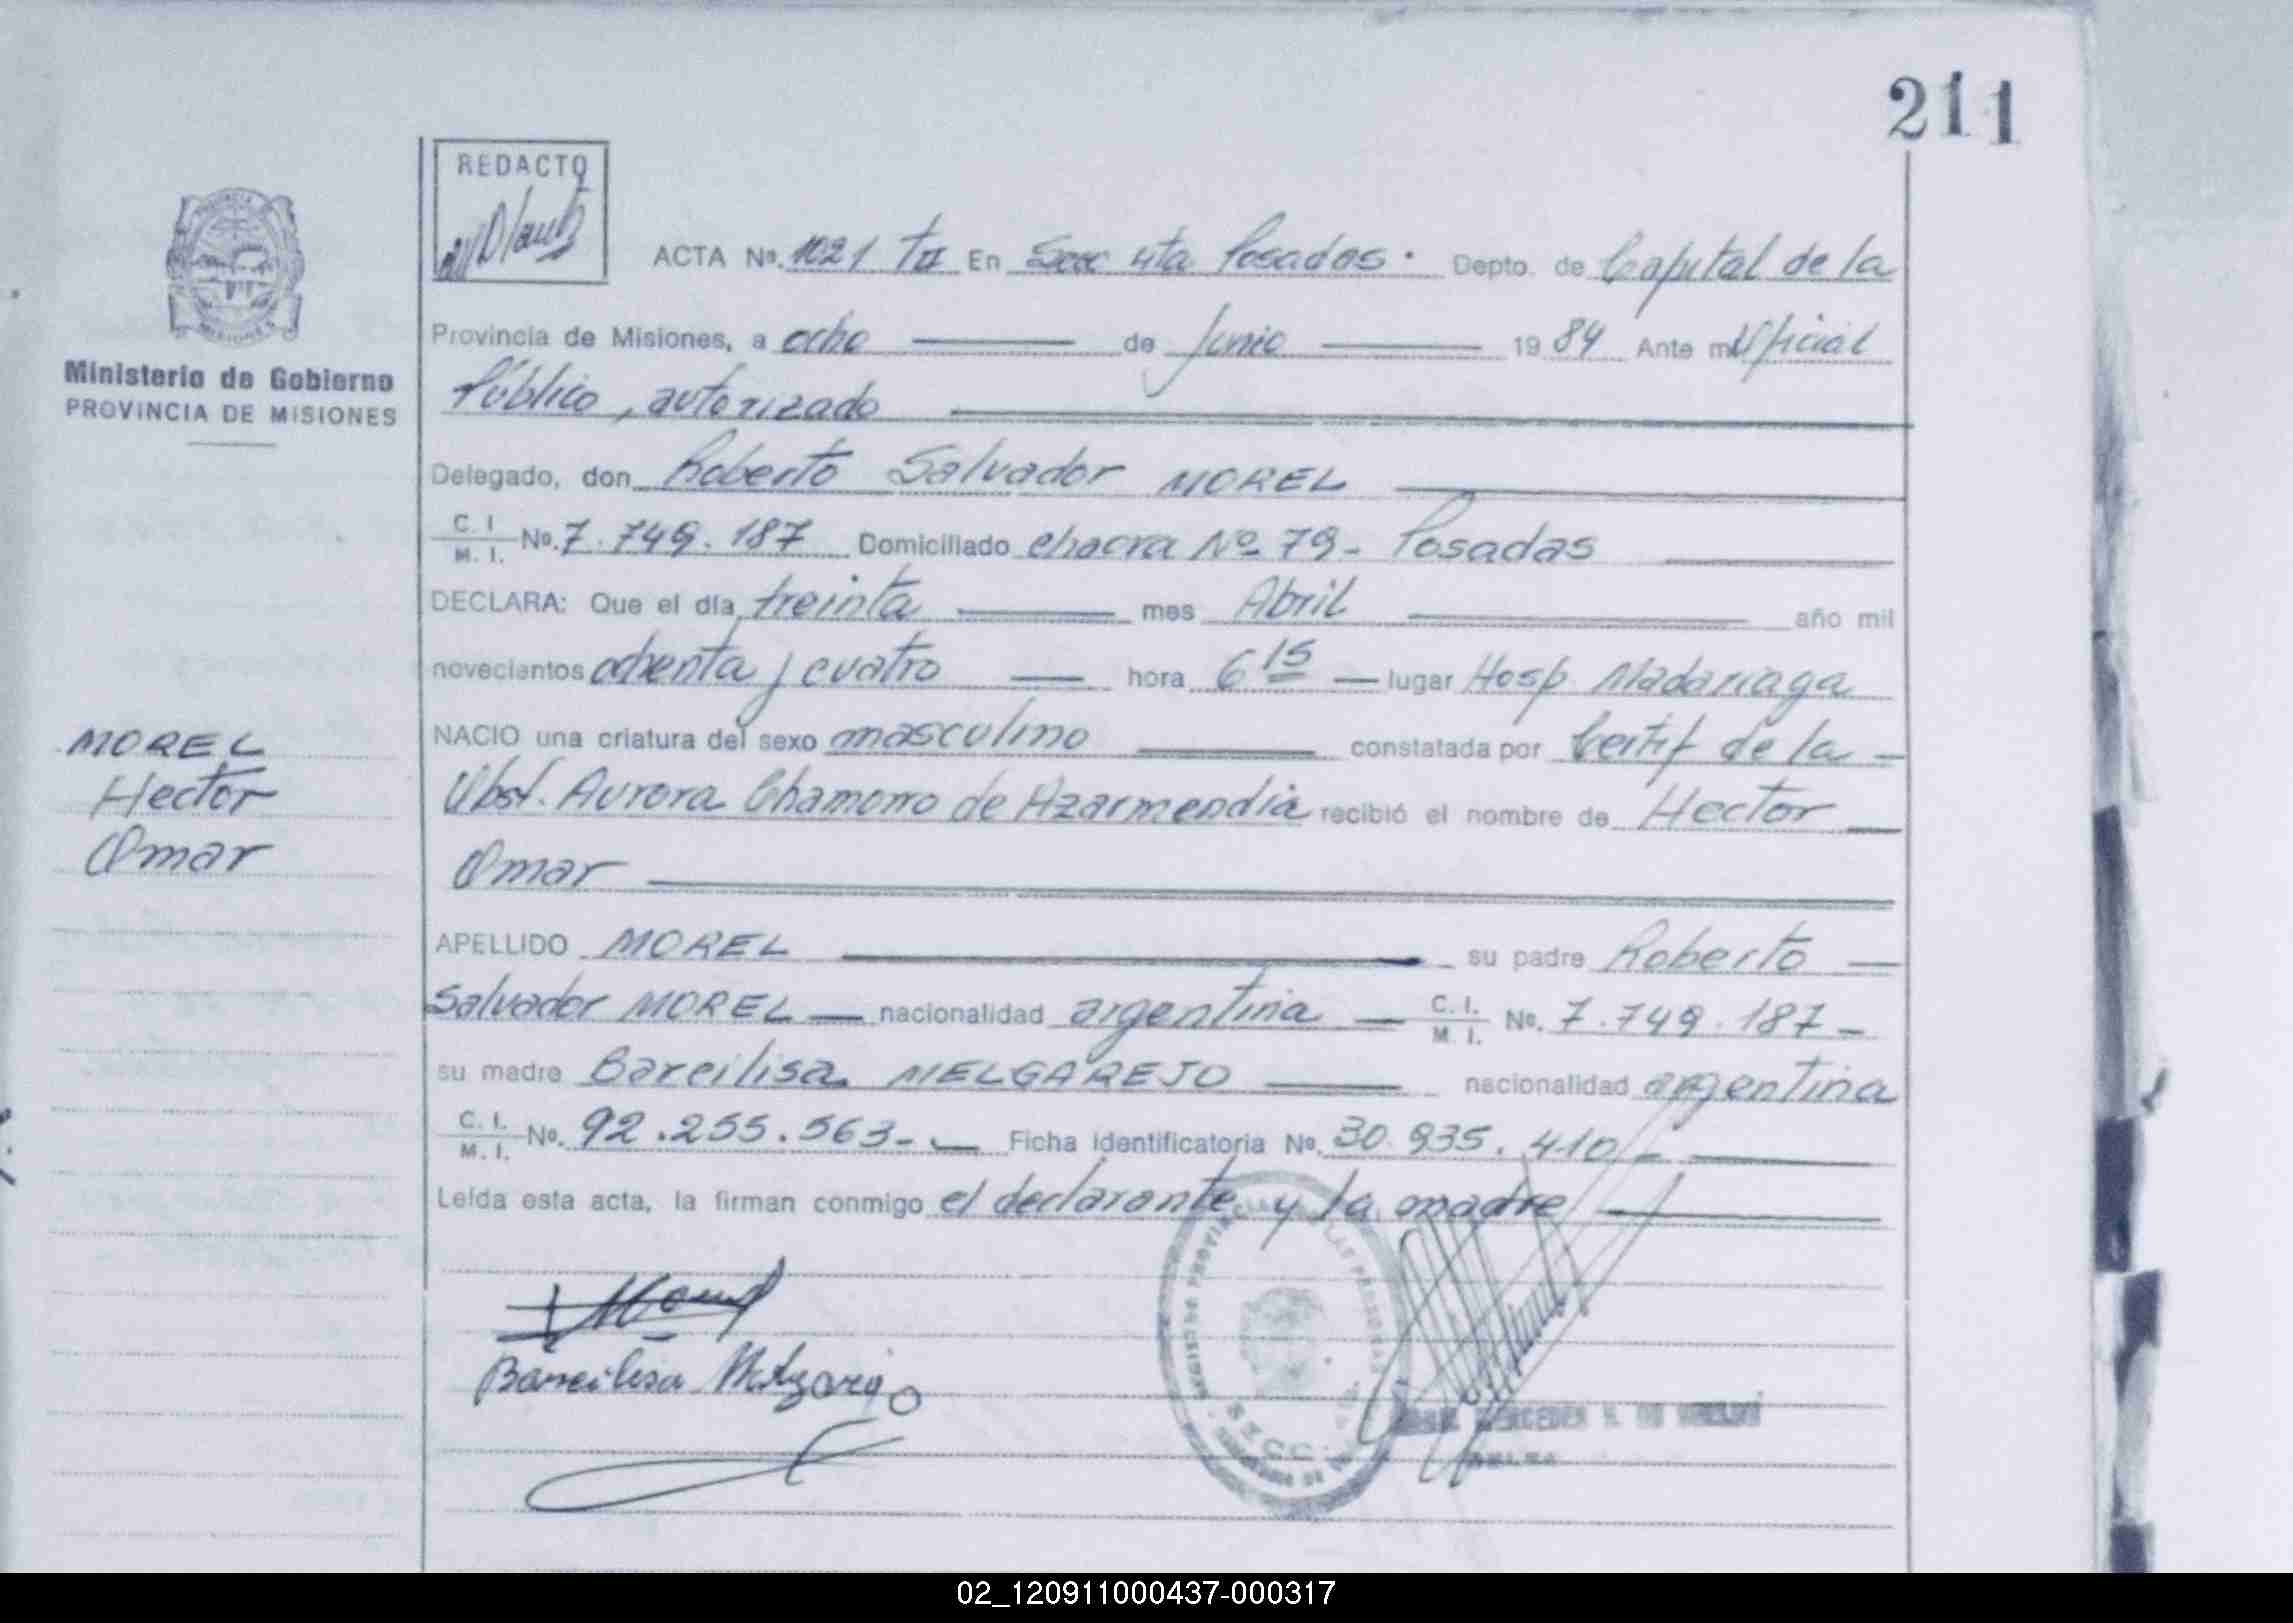 211
REDACTO
ACTA Nº. 1021 TII En Secc 4ta Posadas. Depto. de Capital de la
Provincia de Misiones, a ocho de Junio 19 84 Ante mi Oficial
Ministerio de Gobierno
PROVINCIA DE MISIONES
Público, autorizado
Delegado, don Roberto Salvador MOREL
C. I. M. I. Nº. 7.749.187 Domiciliado chacra Nº 79- Posadas
DECLARA: Que el día treinta mes Abril año mil
novecientos ochenta y cuatro hora 6 15 lugar Hosp. Madariaga
NACIO una criatura del sexo masculino constatada por Certif de la
Obst. Aurora Chamorro de Azarmendia recibió el nombre de Hector
Omar
MOREL
Hector
Omar
APELLIDO MOREL su padre Roberto
Salvador MOREL nacionalidad argentina C. I. M. I. Nº. 7.749.187-
su madre Barcilisa MELGAREJO nacionalidad argentina
C. I. M. I. Nº. 92.255.563- Ficha identificatoria Nº. 30.935.410/-
Leída esta acta, la firman conmigo el declarante y la madre
Barcilisa Melgarejo
02_120911000437-000317